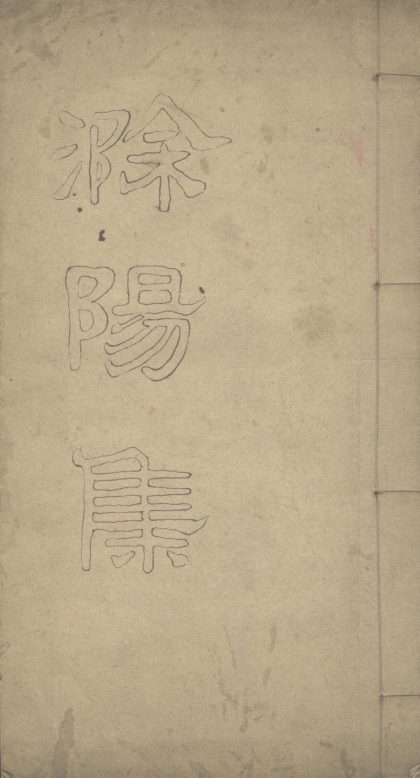 滁陽集